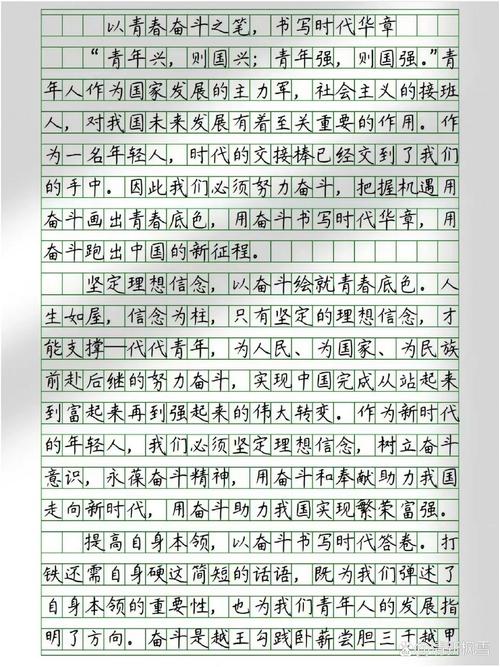 以青春奋斗之笔，书写时代华章
“青年兴，则国兴；青年强，则国强。”青
年人作为国家发展的主力军，社会主义的接班
人，对我国未来发展有着至关重要的作用。作
为一名年轻人，时代的交接棒已经交到了我们
的手中。因此我们必须努力奋斗，把握机遇用
奋斗画出青春底色，用奋斗书写时代华章，用
奋斗跑出中国的新征程。
坚定理想信念，以奋斗绘就青春底色。人
生如屋，信念为柱，只有坚定的理想信念，才
能支撑一代代青年，为人民、为国家、为民族
前赴后继的努力奋斗，实现中国完成从站起来
到富起来再到强起来的伟大转变。作为新时代
的年轻人，我们必须坚定理想信念，树立奋斗
意识，永葆奋斗精神，用奋斗和奉献助力我国
走向新时代，用奋斗助力我国实现繁荣富强。
提高自身本领，以奋斗书写时代答卷。打
铁还需自身硬这简短的话语，既为我们阐述了
自身本领的重要性，也为我们青年人的发展指
明了方向。奋斗是越王勾践卧薪尝胆三千越甲